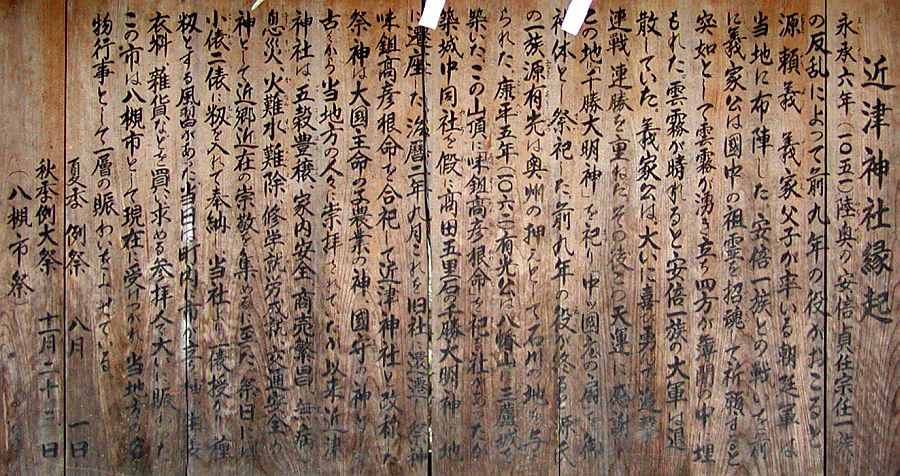 近津神社縁起
永承六年（一〇五一）陸奥の安倍貞任宗任一族
の反乱によって前九年の役がおこると
源頼義 義家父子が率いる朝廷軍は
当地に布陣した 安倍一族との戦いを前
に義家公は國中の祖霊を招魂して祈願すると
突如として雲霧が湧き立ち四方が薄闇の中 埋
もれた 雲霧が晴れると安倍一族の大軍は退
散していた 義家公は大いに喜び勇んで追撃
連戦連勝を重ねた その後この天運に感謝
この地に千勝大明神を祀り 中ツ國
神体とし祭祀した 前九年の役が終ると源氏
の一族源有光は奥州の押えとして石川の地を与
られた 康平五年（一〇六二）有光公は八幡山に三蘆城を
築いた この山頂に味鉏高彦根命を祀る社があったが
築城中同社を假に高田五里石の千勝大明神の地
に遷座した 治暦二年九月これを旧社に還遷し 祭神
味鉏高彦根命を合祀して近津神社と改称した
祭神は大国主命の子農業の神 國守の神として
古くから当地方の人々に崇拝されていたが以来近津
神社は 五穀豊穣 家内安全 商売繁昌 無病
息災 火難水難除 修学就労成就 交通安全の
神として近郷近在の崇敬を集めるに至った 祭日には
小俵二俵に籾を入れて奉納し 当社に一俵授かり種
籾とする風習があった 当日は町内に市が立ち
衣料 雑貨などを買い求める参拝人で大いに賑わった
この市は八槻市として現在に受けつがれ 当地方の名
物行事として一層の賑わいをみせている
夏季 例祭 八月 一日
秋季例大祭 十一月二十三日
（八槻市祭）